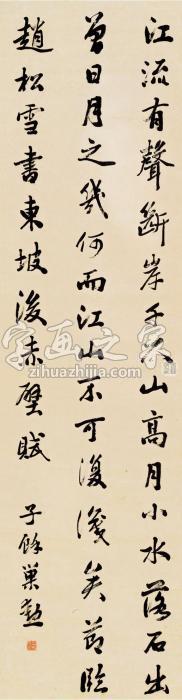 江流有聲斷岸千尺山高月小水落石出
曾日月之幾何而江山不可復識矣節臨
趙松雪書東坡後赤壁賦 子餘巢勳
字画之家
zihuazhijia.com